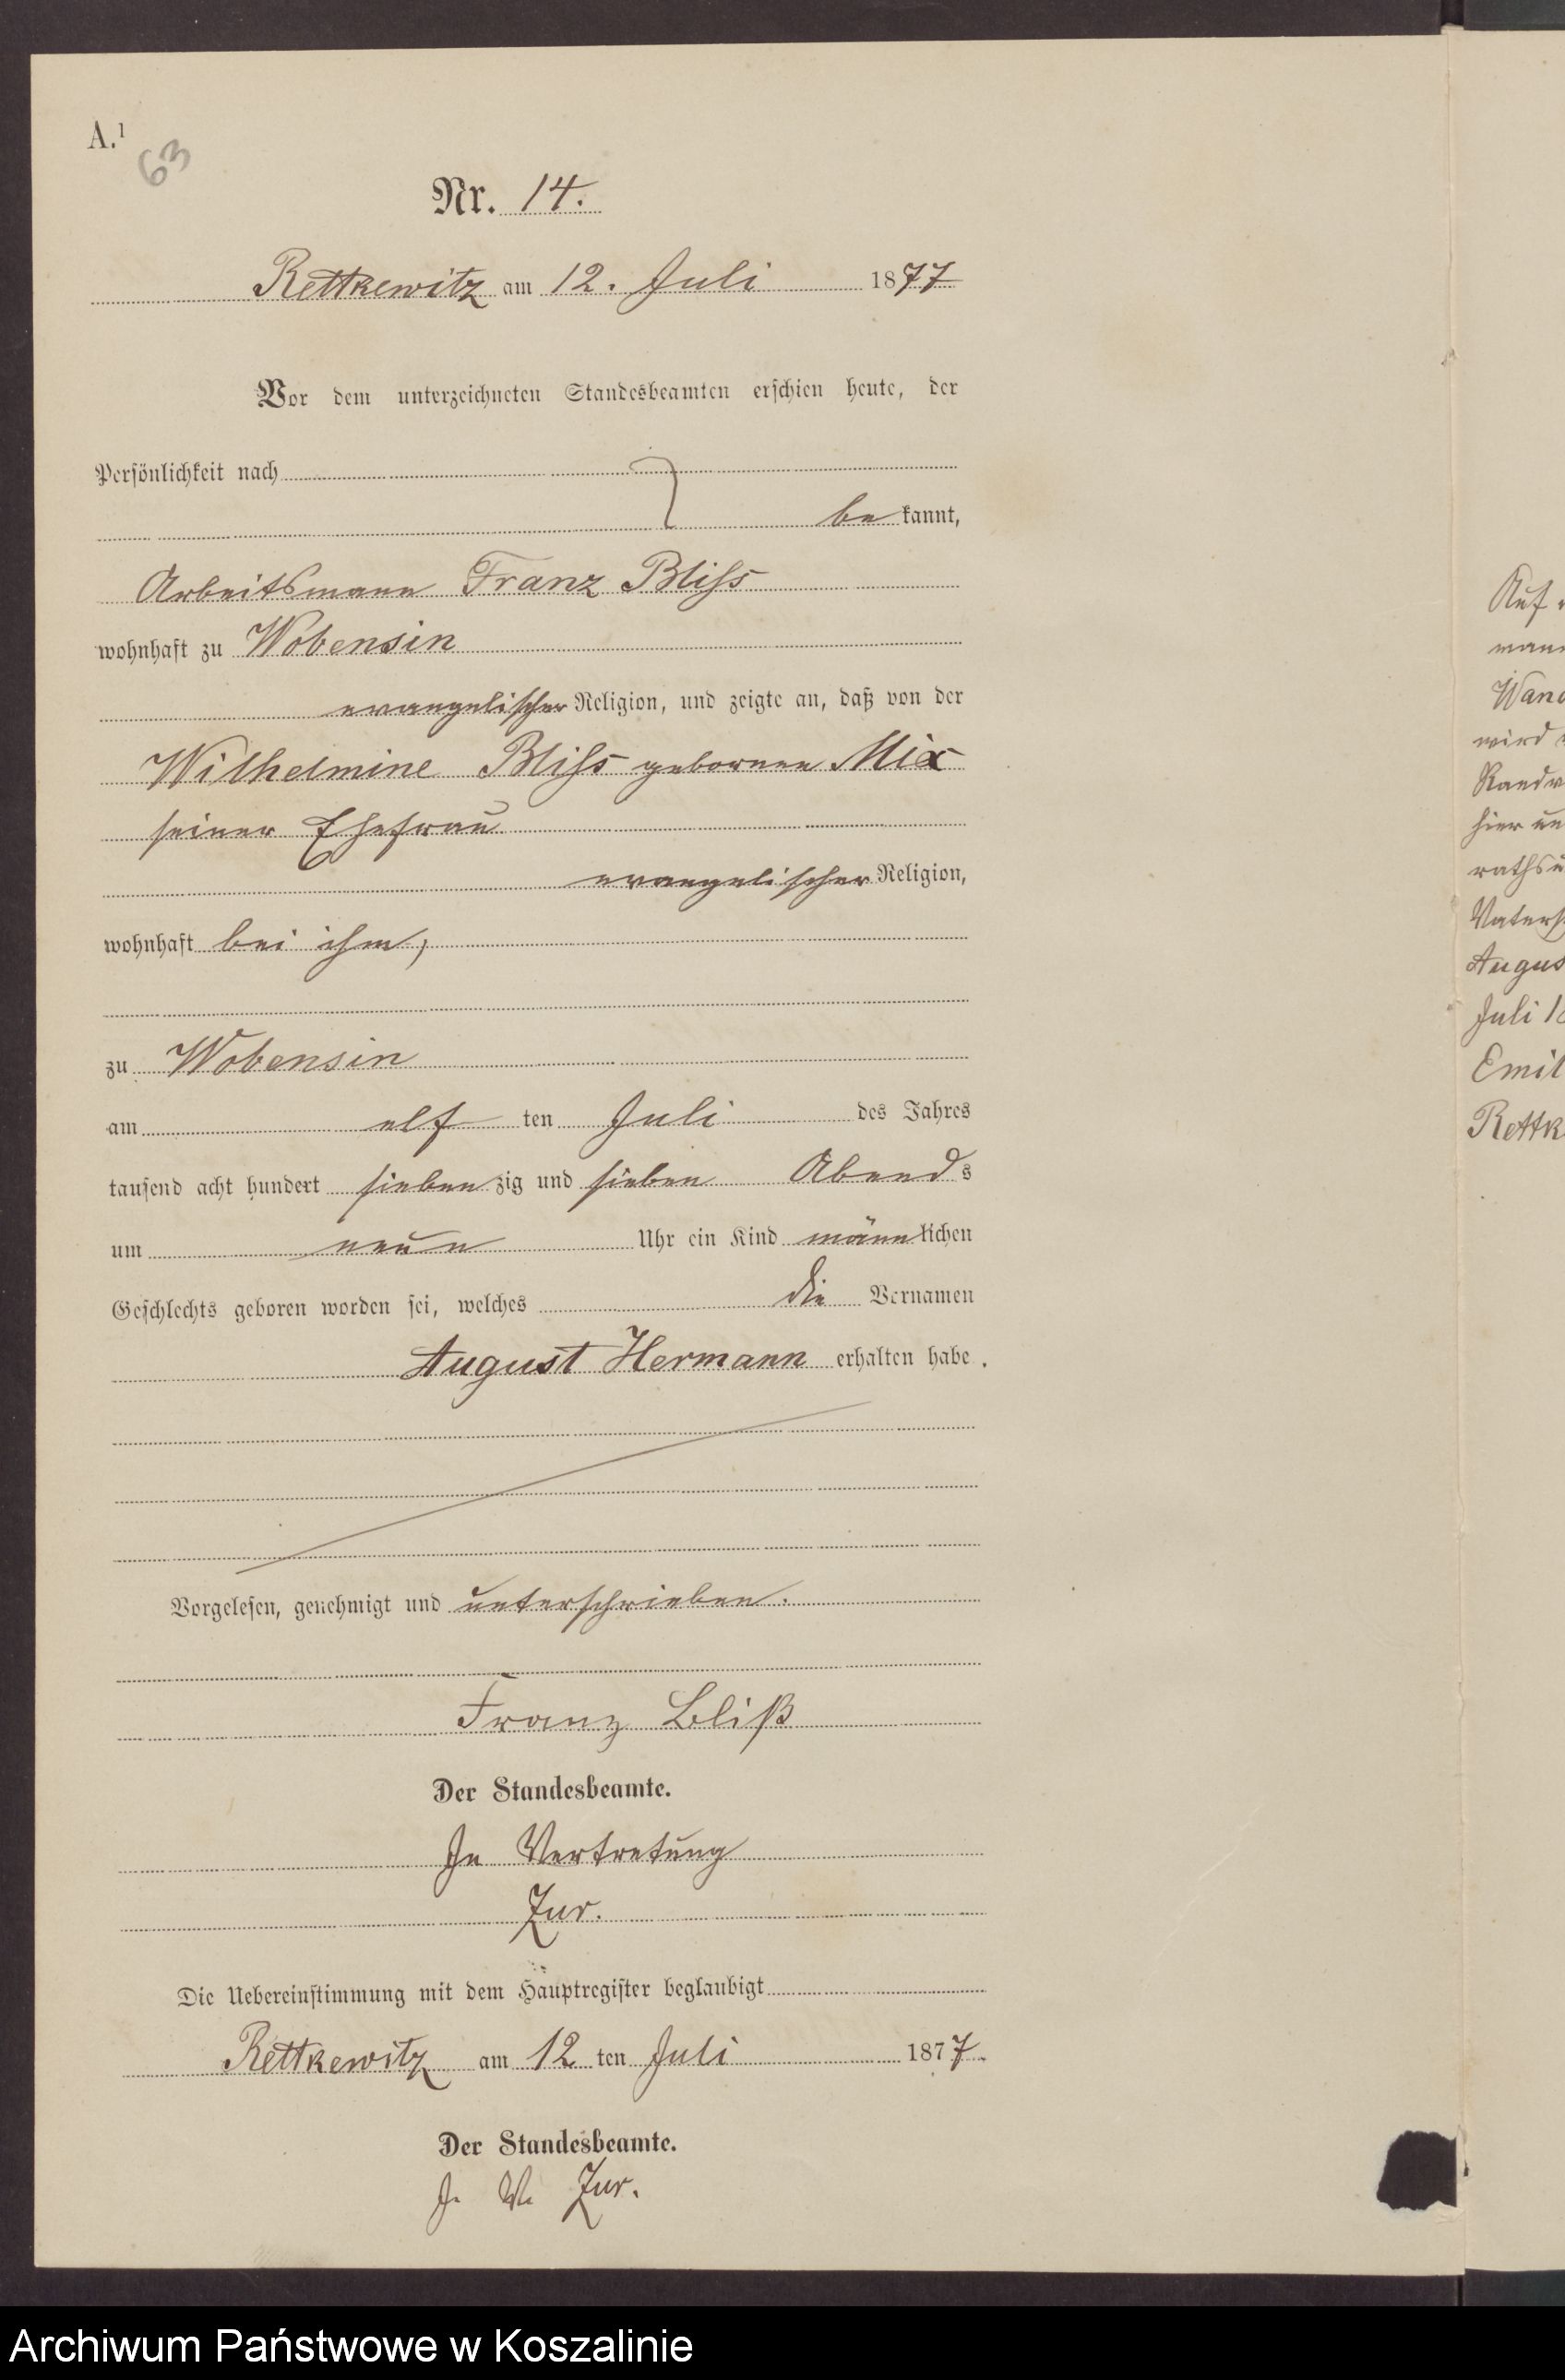 A.¹
63
Nr. 14.
Rettkewitz am 12. Juli 1877
Vor dem unterzeichneten Standesbeamten erschien heute, der
Persönlichkeit nach
bekannt,
Arbeitsmann Franz Bliss
wohnhaft zu Wobensin
evangelischer Religion, und zeigte an, daß von der
Wilhelmine Bliss geborenen Mix
seiner Ehefrau
evangelischer Religion,
wohnhaft bei ihm,
zu Wobensin
am elf ten Juli des Jahres
tausend acht hundert siebenzig und sieben Abends
um neun Uhr ein Kind männlichen
Geschlechts geboren worden sei, welches die Vornamen
August Hermann erhalten habe.
Vorgelesen, genehmigt und unterschrieben.
Franz Bliß
Der Standesbeamte.
In Vertretung
Zur.
Die Uebereinstimmung mit dem Hauptregister beglaubigt
Rettkewitz am 12 ten Juli 1877.
Der Standesbeamte.
J. V. Zur.
Auf
wird
hier
Juli 18
Archiwum Państwowe w Koszalinie